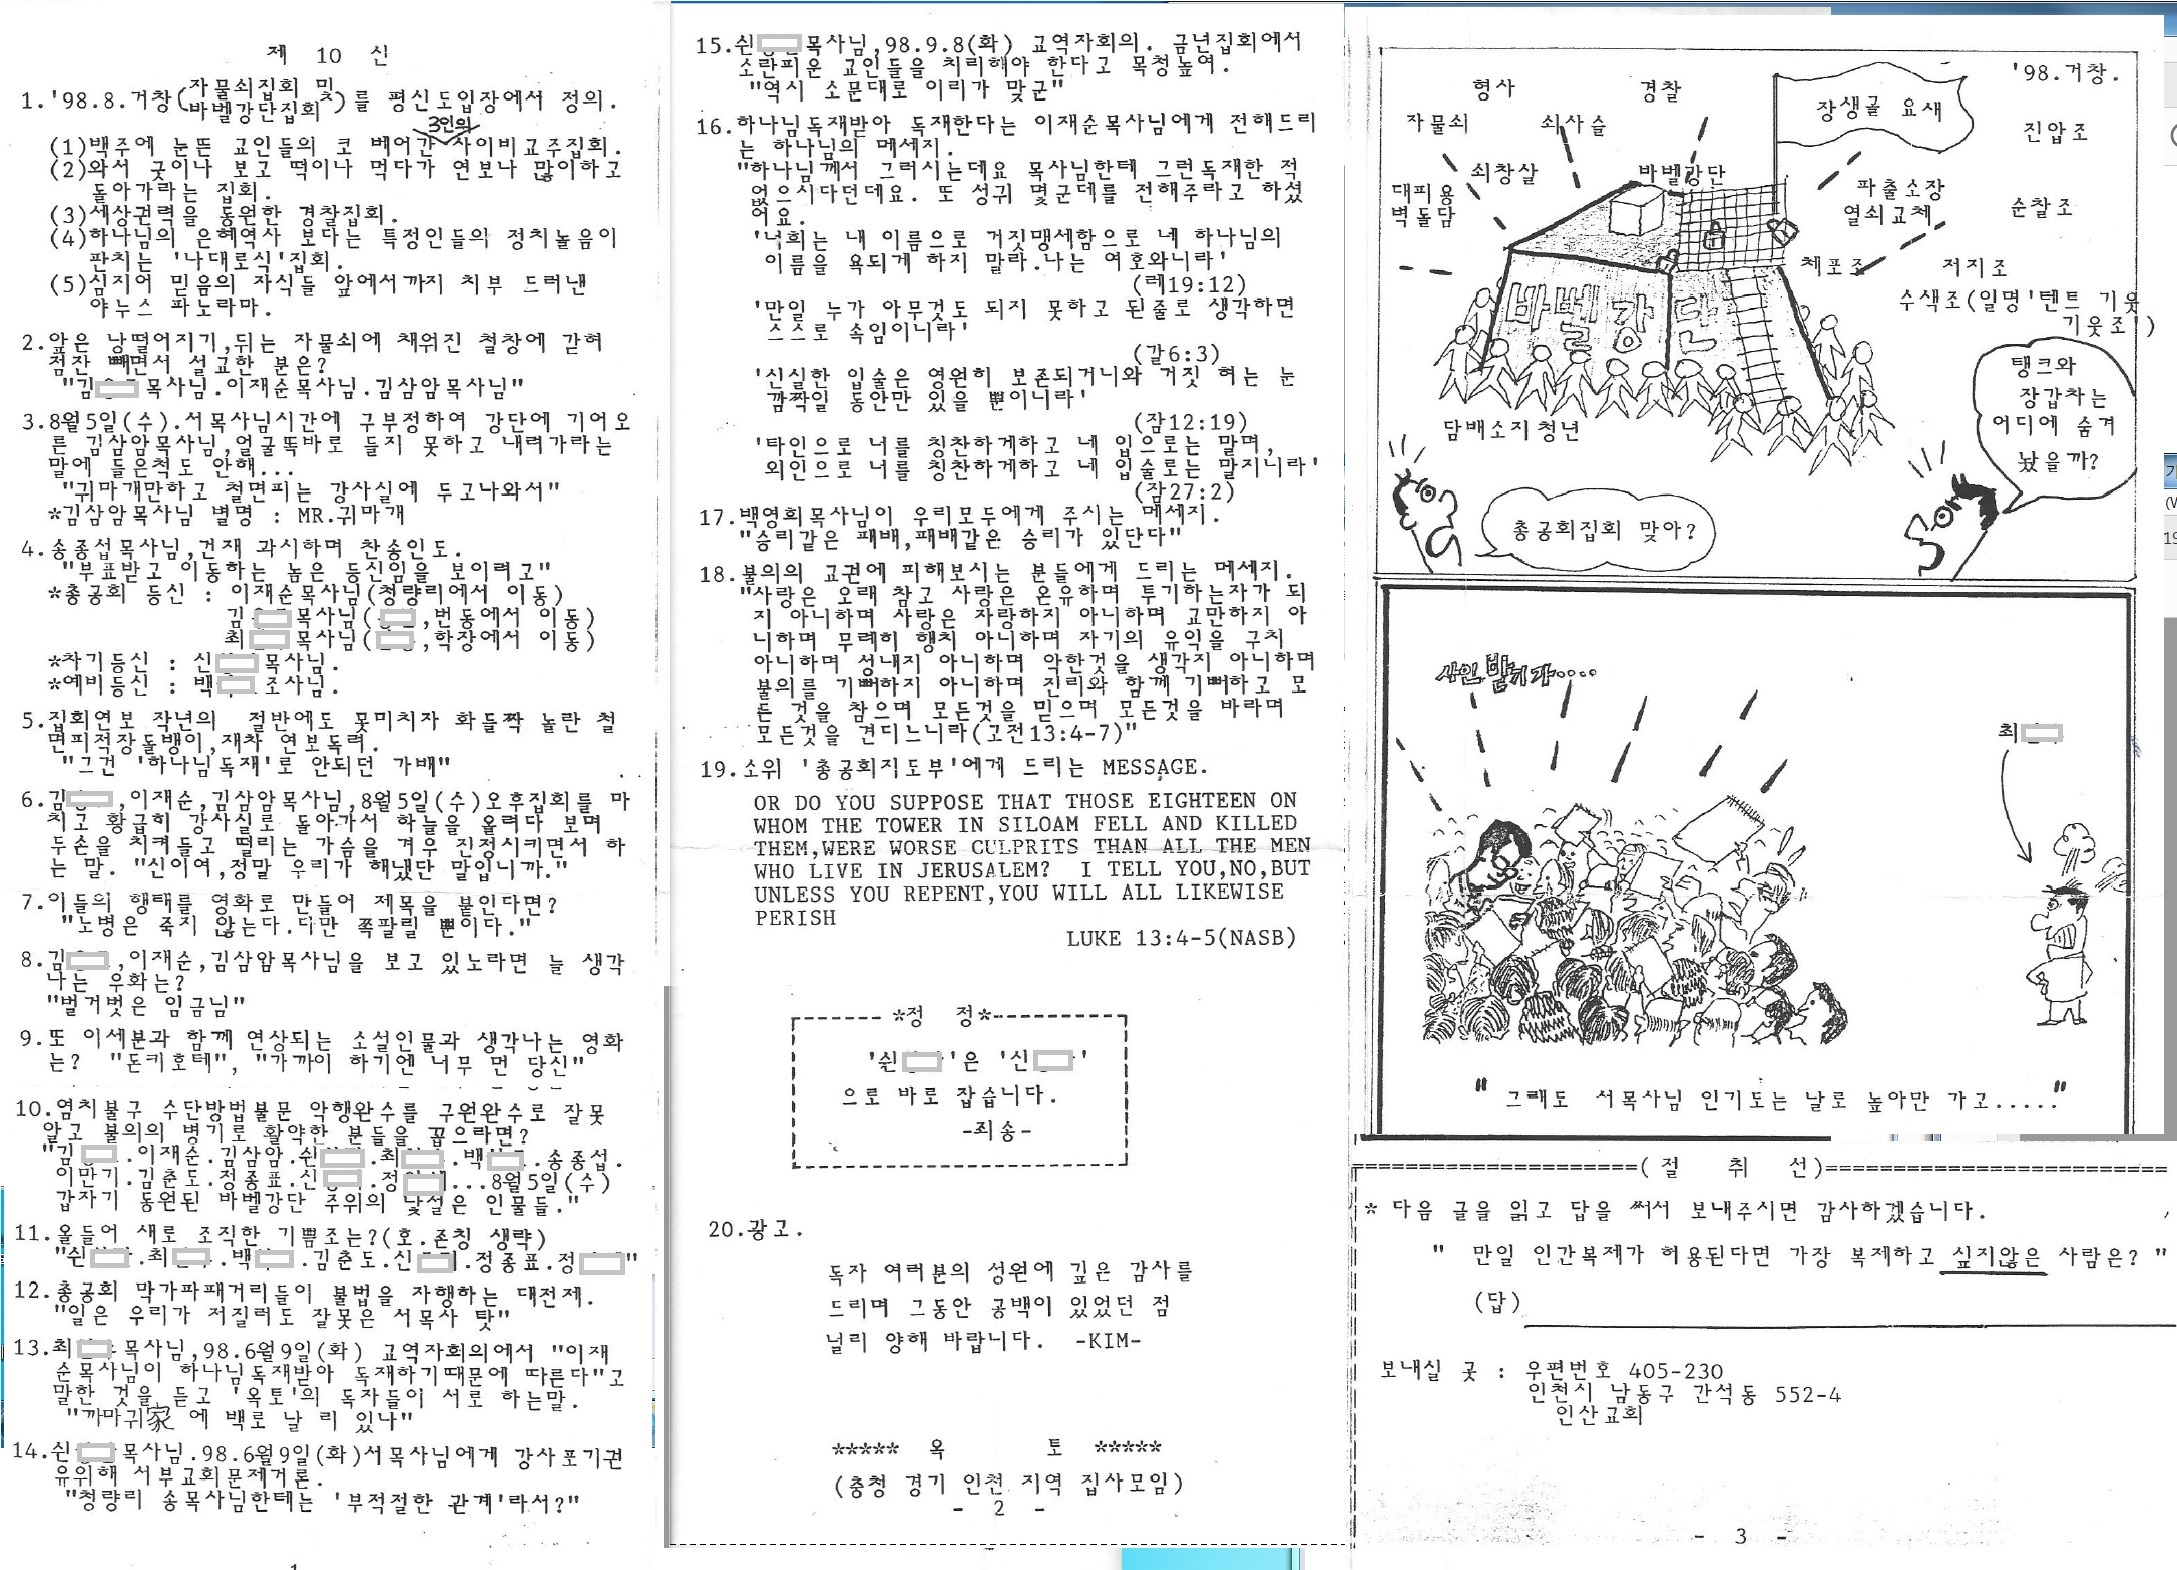 제 10 신
1.'98.8.거창(자물쇠집회 및
바벨강단집회)를 평신도입장에서 정의.
(1)백주에 눈뜬 교인들의 코 베어간 3인의 사이비교주집회.
(2)와서 굿이나 보고 떡이나 먹다가 연보나 많이하고
돌아가라는 집회.
(3)세상권력을 동원한 경찰집회.
(4)하나님의 은혜역사 보다는 특정인들의 정치놀음이
판치는 '나대로식'집회.
(5)심지어 믿음의 자식들 앞에서까지 치부 드러낸
야누스 파노라마.
2.앞은 낭떨어지기,뒤는 자물쇠에 채워진 철창에 갇혀
점잔 빼면서 설교한 분은?
"김 목사님.이재순목사님.김삼암목사님"
3.8월5일(수).서목사님시간에 구부정하여 강단에 기어오
른 김삼암목사님,얼굴똑바로 들지 못하고 내려가라는
말에 들은척도 안해...
"귀마개만하고 철면피는 강사실에 두고나와서"
*김삼암목사님 별명 : MR.귀마개
4.송종섭목사님,건재 과시하며 찬송인도.
"부표받고 이동하는 놈은 등신임을 보이려고"
*총공회 등신 : 이재순목사님(청량리에서 이동)
김 목사님( ,번동에서 이동)
최 목사님( ,학장에서 이동)
*차기등신 : 신 목사님.
*예비등신 : 백 조사님.
5.집회연보 작년의 절반에도 못미치자 화들짝 놀란 철
면피적장돌뱅이,재차 연보독력.
"그건 '하나님독재'로 안되던 가배"
6.김 ,이재순,김삼암목사님,8월5일(수)오후집회를 마
치고 황급히 강사실로 돌아가서 하늘을 올려다 보며
두손을 치켜들고 떨리는 가슴을 겨우 진정시키면서 하
는 말. "신이여,정말 우리가 해냈단 말입니까."
7.이들의 행태를 영화로 만들어 제목을 붙인다면?
"노병은 죽지 않는다.다만 쪽팔릴 뿐이다."
8.김 ,이재순,김삼암목사님을 보고 있노라면 늘 생각
나는 우화는?
"벌거벗은 임금님"
9.또 이세분과 함께 연상되는 소설인물과 생각나는 영화
는? "돈키호테", "가까이 하기엔 너무 먼 당신"
10.염치불구 수단방법불문 악행완수를 구원완수로 잘못
알고 불의의 병기로 활약한 분들을 꼽으라면?
"김 .이재순.김삼암.쉰 .최 .백 .송종섭.
이만기.김춘도.정종표.신 .정 ...8월5일(수)
갑자기 동원된 바벨강단 주위의 낯설은 인물들."
11.올들어 새로 조직한 기쁨조는?(호.존칭 생략)
"쉰 .최 .백 .김춘도.신 .정종표.정 "
12.총공회 막가파패거리들이 불법을 자행하는 대전제.
"일은 우리가 저질러도 잘못은 서목사 탓"
13.최 목사님,98.6월9일(화) 교역자회의에서 "이재
순목사님이 하나님독재받아 독재하기때문에 따른다"고
말한 것을 듣고 '옥토'의 독자들이 서로 하는말.
"까마귀家 에 백로 날 리 있나"
14.쉰 목사님.98.6월9일(화)서목사님에게 강사포기권
유위해 서부교회문제거론.
"청량리 송목사님한테는 '부적절한 관계'라서?"
15.쉰 목사님,98.9.8(화) 교역자회의. 금년집회에서
소란피운 교인들을 치리해야 한다고 목청높여.
"역시 소문대로 이리가 맞군"
16.하나님독재받아 독재한다는 이재순목사님에게 전해드리
는 하나님의 메세지.
"하나님께서 그러시는데요 목사님한테 그런독재한 적
없으시다던데요. 또 성귀 몇군데를 전해주라고 하셨
어요.
'너희는 내 이름으로 거짓맹세함으로 네 하나님의
이름을 욕되게 하지 말라.나는 여호와니라'
(레19:12)
'만일 누가 아무것도 되지 못하고 된줄로 생각하면
스스로 속임이니라'
(갈6:3)
'신실한 입술은 영원히 보존되거니와 거짓 혀는 눈
깜짝일 동안만 있을 뿐이니라'
(잠12:19)
'타인으로 너를 칭찬하게하고 네 입으로는 말며,
외인으로 너를 칭찬하게하고 네 입술로는 말지니라'
(잠27:2)
17.백영희목사님이 우리모두에게 주시는 메세지.
"승리같은 패배,패배같은 승리가 있단다"
18.불의의 교권에 피해보시는 분들에게 드리는 메세지.
"사랑은 오래 참고 사랑은 온유하며 투기하는자가 되
지 아니하며 사랑은 자랑하지 아니하며 교만하지 아
니하며 무례히 행치 아니하며 자기의 유익을 구치
아니하며 성내지 아니하며 악한것을 생각지 아니하며
불의를 기뻐하지 아니하며 진리와 함께 기뻐하고 모
든 것을 참으며 모든것을 믿으며 모든것을 바라며
모든것을 견디느니라(고전13:4-7)"
19.소위 '총공회지도부'에게 드리는 MESSAGE.
OR DO YOU SUPPOSE THAT THOSE EIGHTEEN ON
WHOM THE TOWER IN SILOAM FELL AND KILLED
THEM,WERE WORSE CULPRITS THAN ALL THE MEN
WHO LIVE IN JERUSALEM? I TELL YOU,NO,BUT
UNLESS YOU REPENT,YOU WILL ALL LIKEWISE
PERISH
LUKE 13:4-5(NASB)
*정 정*
'쉰 '은 '신 '
으로 바로 잡습니다.
-죄송-
20.광고.
독자 여러분의 성원에 깊은 감사를
드리며 그동안 공백이 있었던 점
널리 양해 바랍니다. -KIM-
***** 옥 토 *****
(충청 경기 인천 지역 집사모임)
- 2 -
'98.거창.
형사
경찰
장생골 요새
자물쇠
쇠사슬
진압조
쇠창살
바벨강단
대피용
벽돌담
파출소장
열쇠교체
순찰조
체포조
저지조
수색조(일명'텐트 기웃
기웃조')
바벨강단
담배소지청년
탱크와
장갑차는
어디에 숨겨
놨을까?
총공회집회 맞아?
사인받기가....
최
" 그래도 서목사님 인기도는 날로 높아만 가고....."
(절 취 선)
* 다음 글을 읽고 답을 써서 보내주시면 감사하겠습니다.
" 만일 인간복제가 허용된다면 가장 복제하고 싶지않은 사람은? "
(답)
보내실 곳 : 우편번호 405-230
인천시 남동구 간석동 552-4
인산교회
- 3 -